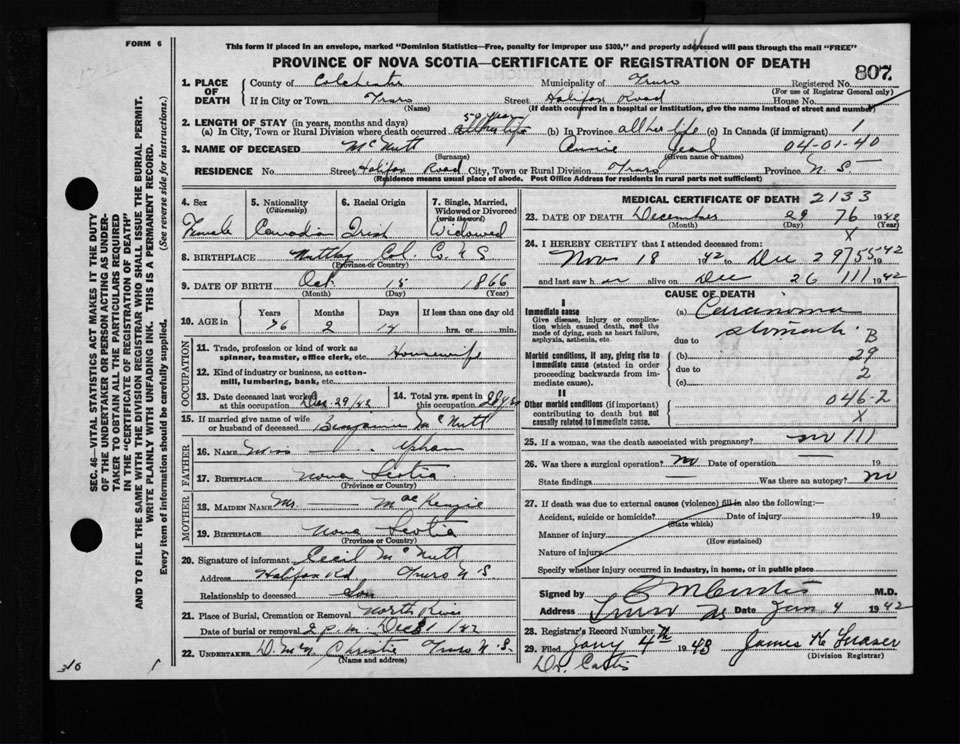 FORM 6
This form if placed in an envelope, marked "Dominion Statistics—Free, penalty for improper use $300," and properly addressed will pass through the mail "FREE"
PROVINCE OF NOVA SCOTIA—CERTIFICATE OF REGISTRATION OF DEATH
807.
1. PLACE OF DEATH
County of Colchester Municipality of Truro Registered No.
(For use of Registrar General only)
If in City or Town Truro Street Halifax Road House No.
(Name) (If death occurred in a hospital or institution, give the name instead of street and number)
2. LENGTH OF STAY (in years, months and days) 50 years
(a) In City, Town or Rural Division where death occurred all her life (b) In Province all her life (c) In Canada (if immigrant) 1
3. NAME OF DECEASED McNutt Annie 04-01-40
(Surname) (Given name or names)
RESIDENCE No. Street Halifax Road City, Town or Rural Division Truro Province N.S.
(Residence means usual place of abode. Post Office Address for residents in rural parts not sufficient)
4. Sex 5. Nationality 6. Racial Origin 7. Single, Married, Widowed or Divorced
(Citizenship) (write the word)
Female Canadian Irish Widowed
8. BIRTHPLACE Col. Co. N.S.
(Province or Country)
9. DATE OF BIRTH Oct 15 1866
(Month) (Day) (Year)
10. AGE in Years Months Days If less than one day old
76 2 14 hrs. or min.
OCCUPATION
11. Trade, profession or kind of work as spinner, teamster, office clerk, etc. Housewife
12. Kind of industry or business, as cotton-mill, lumbering, bank, etc.
13. Date deceased last worked at this occupation Dec. 29/42 14. Total yrs. spent in this occupation
15. If married give name of wife or husband of deceased Benjamin McNutt
FATHER
16. NAME Upham
17. BIRTHPLACE Nova Scotia
(Province or Country)
MOTHER
18. MAIDEN NAME MacKenzie
19. BIRTHPLACE Nova Scotia
(Province or Country)
20. Signature of informant Cecil McNutt
Address Halifax Rd Truro N.S.
Relationship to deceased Son
21. Place of Burial, Cremation or Removal North River
Date of burial or removal 2 p.m. Dec 31/42
22. UNDERTAKER Christie Truro N.S.
(Name and address)
MEDICAL CERTIFICATE OF DEATH 2133
23. DATE OF DEATH December 29 76 1942
(Month) (Day) (Year)
X
24. I HEREBY CERTIFY that I attended deceased from:
Nov 18 1942 to Dec 29 755 1942
and last saw her alive on Dec 26 111 1942
CAUSE OF DEATH
I
Immediate cause (a) Carcinoma
Give disease, injury or complication which caused death, not the mode of dying, such as heart failure, asphyxia, asthenia, etc. stomach.
due to B
Morbid conditions, if any, giving rise to immediate cause (stated in order proceeding backwards from immediate cause). (b) 29
due to 2
(c)
II
Other morbid conditions (if important) contributing to death but not causally related to immediate cause. 046-2
X
25. If a woman, was the death associated with pregnancy? no 111
26. Was there a surgical operation? No Date of operation — 19
State findings — Was there an autopsy? No
27. If death was due to external causes (violence) fill in also the following:—
Accident, suicide or homicide? Date of injury 19
(State which)
Manner of injury
(How sustained)
Nature of injury
Specify whether injury occurred in industry, in home, or in public place
Signed by M.D.
Address Truro NS Date Jan 4 1942
28. Registrar's Record Number
29. Filed Jany 4th 1943 James H Fraser
(Division Registrar)
SEC. 46—VITAL STATISTICS ACT MAKES IT THE DUTY
OF THE UNDERTAKER OR PERSON ACTING AS UNDER-
TAKER TO OBTAIN ALL THE PARTICULARS REQUIRED
IN THE "CERTIFICATE OF REGISTRATION OF DEATH"
AND TO FILE THE SAME WITH THE DIVISION REGISTRAR WHO SHALL ISSUE THE BURIAL PERMIT.
WRITE PLAINLY WITH UNFADING INK. THIS IS A PERMANENT RECORD.
Every item of information should be carefully supplied. (See reverse side for instructions.)